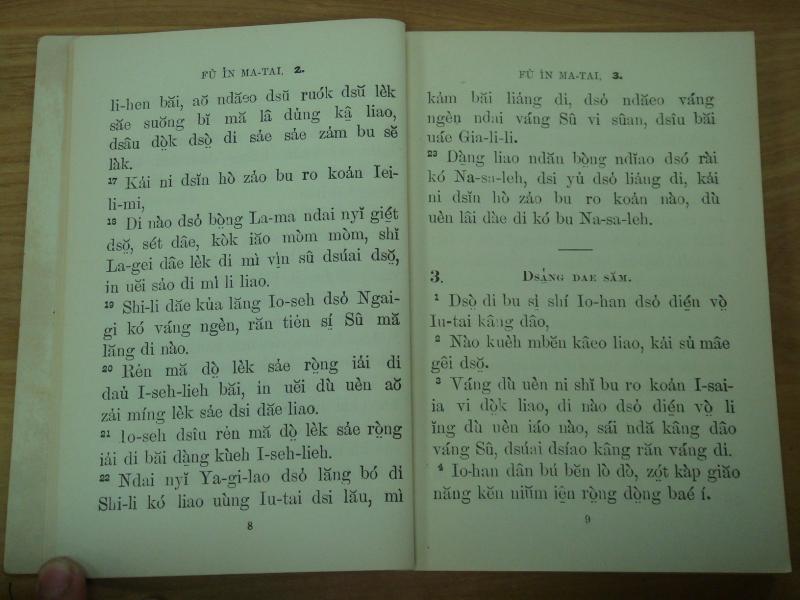 FÙ ÎN MA-TAI, 2.
li-hen băi, aŏ ndăeo dsŭ ruók dsŭ lèk
săe suŏng bĭ mă lâ dủng kậ liao,
dsâu dọ̀k dsọ̀ di sảe sảe zảm bu sĕ̤
làk.
17 Kải ni dsĭn hò zảo bu ro koản Iei-
li-mi,
18 Di nào dsỏ bọ̀ng La-ma ndai nyĭ giế̤t
dsọ̆, sét dâe, kòk iăo mòm mòm, shĭ
La-gei dâe lèk di mì vịn sû dsúai dsọ̆,
in uĕi sảo di mì li liao.
19 Shi-li dăe kủa lăng Io-seh dsỏ Ngai-
gi kó váng ngèn, răn tiẻn sị́ Sû mă
lăng di nào.
20 Rẻn mă dọ̀ lèk sảe rọ̀ng iải di
daủ I-seh-lieh băi, in uĕi dù uèn aŏ
zải míng lèk sảe dsi dăe liao.
21 Io-seh dsîu rẻn mă dọ̀ lèk sảe rọ̀ng
iải di băi dạ̀ng kùeh I-seh-lieh.
22 Ndai nyĭ Ya-gi-lao dsỏ lăng bó di
Shi-li kó liao uùng Iu-tai dsi lău, mì
8
FÙ ÎN MA-TAI, 3.
kảm băi liảng di, dsỏ ndăeo váng
ngèn ndai váng Sû vi sûan, dsîu băi
uáe Gia-li-li.
23 Dạ̀ng liao ndăn bọ̀ng ndĭao dsó rài
kó Na-sa-leh, dsi yủ dsỏ liảng di, kải
ni dsĭn hò zảo bu ro koản nào, dù
uèn lâi dàe di kó bu Na-sa-leh.
3. DSẢ̤NG DAE SĂM.
1 Dsọ̀ di bu sị shí Io-han dsỏ diế̤n vọ̀
Iu-tai kâng dâo,
2 Nào kuèh mbĕn kâeo liao, kải sủ mâe
gêi dsọ̆.
3 Váng dù uèn ni shĭ bu ro koản I-sai-
ia vi dọ̀k liao, di nào dsỏ diế̤n vọ̀ li
ĭng dù uèn iáo nào, sái ndă kâng dâo
váng Sû, dsúai dsíao kâng răn váng di.
4 Io-han dân bú bĕn lò dò, zọ́t kàp giăo
năng kĕn niŭm iệ̂n rọ̀ng dọ̀ng baé í.
9